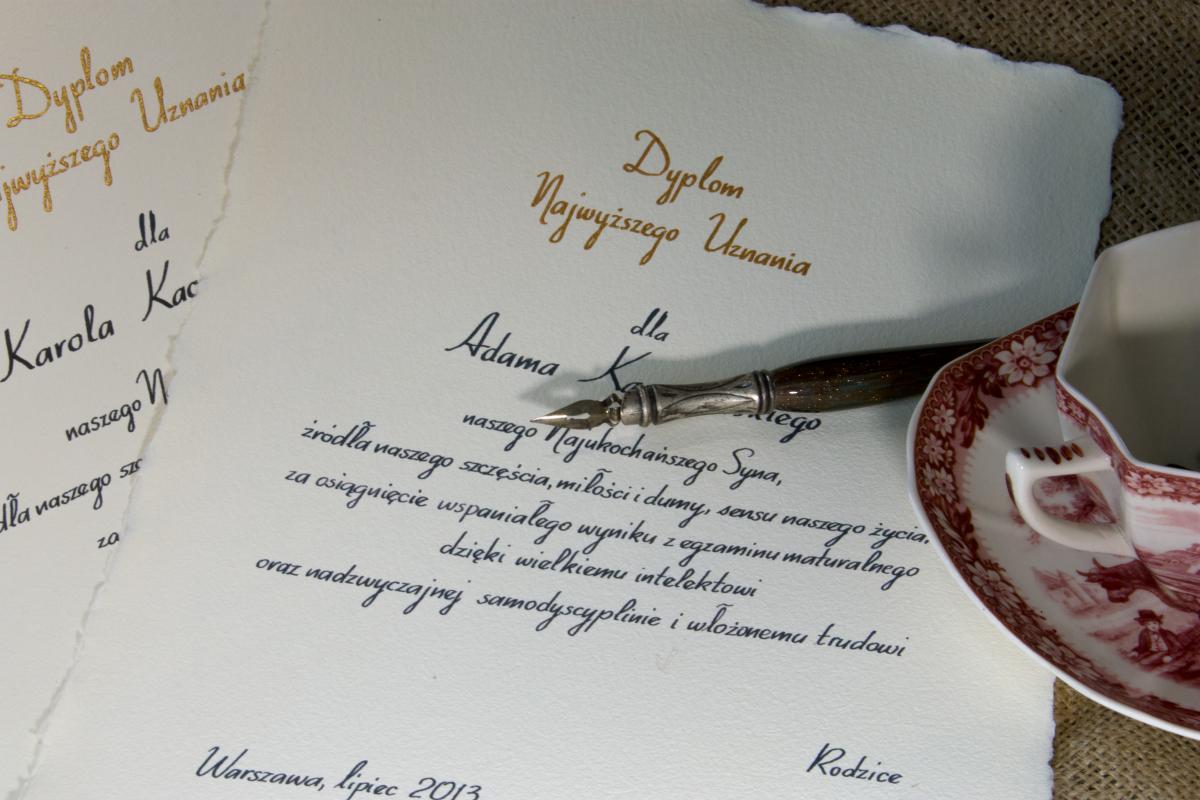 Dyplom
Uznania
dla
Karola
naszego
naszego
za
Dyplom
Najwyższego Uznania
dla
Adama
naszego Najukochańszego Syna,
źródła naszego szczęścia, miłości i dumy, sensu naszego życia,
za osiągnięcie wspaniałego wyniku z egzaminu maturalnego
dzięki wielkiemu intelektowi
oraz nadzwyczajnej samodyscyplinie i włożonemu trudowi
Rodzice
Warszawa, lipiec 2013